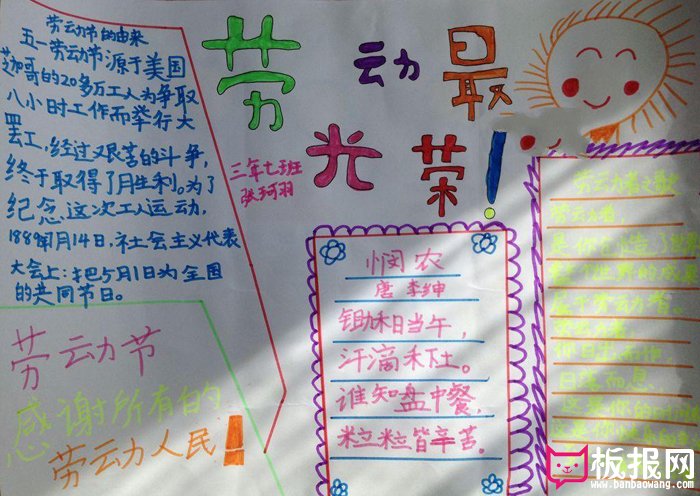 劳动节的由来
五一劳动节源于美国
芝加哥的20多万工人为争取
八小时工作而举行大
罢工,经过艰苦的斗争,
终于取得了胜利。为了
纪念这次工人运动,
1889年7月14日,社会主义代表
大会上:把5月1日为全国
的共同节日。
劳动节
感谢所有的
劳动人民!
劳动最
光荣!
三年七班
张珂羽
悯农
唐 李绅
锄禾日当午,
汗滴禾下土。
谁知盘中餐,
粒粒皆辛苦。
劳动者之歌
劳动者,
日落而息
板报网
www.banbaowang.com